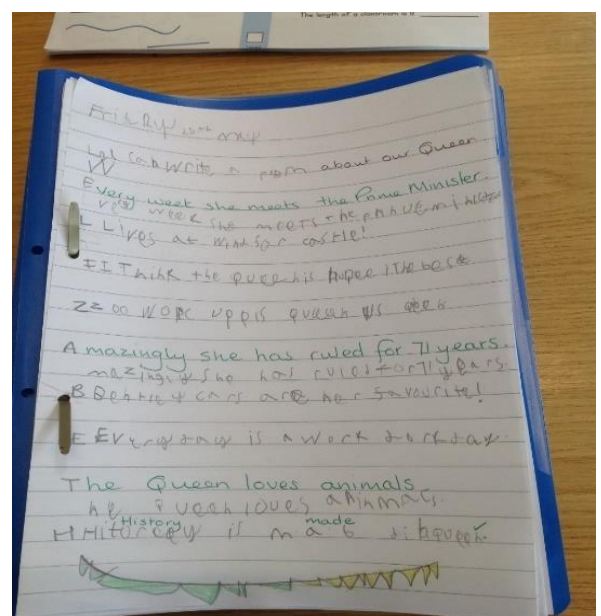 The length of a classroom is 8
Friday 20th may
Lgl Can write a poem about our Queen
Every week she meets the Prime Minister.
week she meets the
L Lives at windsor castle!
I I Think the queen is the best
Zz oo work
Amazingly she has ruled for 71 years.
mazingly she has rules for 71 years.
B Bentley cars are her favourite!
E Every day is a work day.
The Queen loves animals
he queen loves animals.
History made
H Hitorey is mad